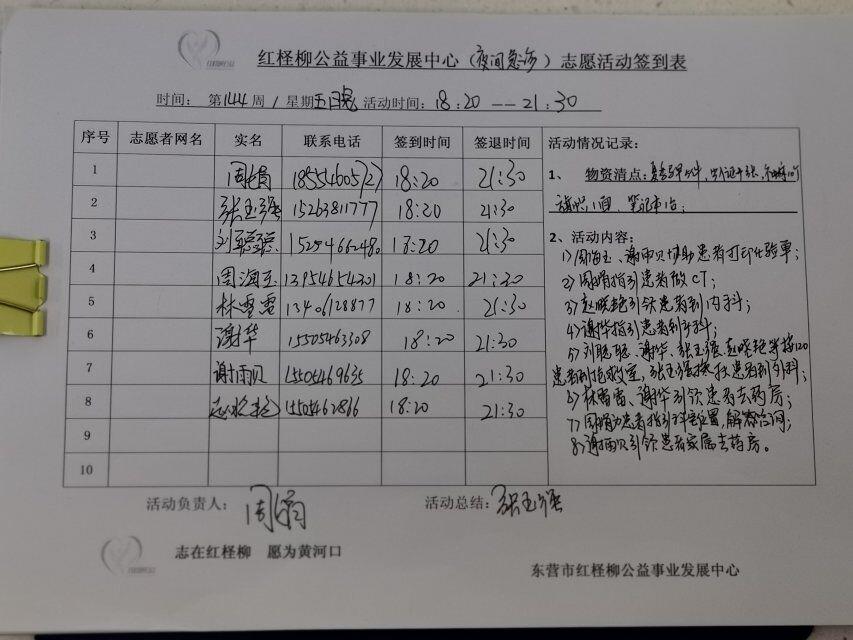 红柽柳公益事业发展中心（夜间急诊）志愿活动签到表
时间：第144周/星期五日晚 活动时间：18:20——21:30
序号 志愿者网名 实名 联系电话 签到时间 签退时间 活动情况记录：
1 周娟 18554605727 18:20 21:30
2 张玉强 15263811777 18:20 21:30
3 刘聪聪 1525466248 18:20 21:30
4 周海玉 13954654301 18:20 21:30
5 林雪雪 13406128877 18:20 21:30
6 谢华 15505463308 18:20 21:30
7 谢雨贝 15505469635 18:20 21:30
8 15505462816 18:20 21:30
9
10
1、物资清点：
旗帜1面、笔记本1本；
2、活动内容：
1）周海玉、谢雨贝协助患者打印化验单；
2）周娟指引患者做CT；
3）赵晓艳引领患者到内科；
4）谢华指引患者到外科；
5）刘聪聪、谢华、张玉强、赵晓艳等接120
患者到抢救室，张玉强搀扶患者到外科；
6）林雪雪、谢华引领患者去药房；
7）周娟为患者指引科室位置，解答咨询；
8）谢雨贝引领患者家属去药房。
活动负责人：周娟 活动总结：张玉强
志在红柽柳 愿为黄河口
东营市红柽柳公益事业发展中心